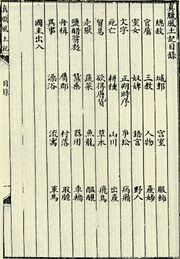 真臘風土記目錄
總敘 城郭 宮室 服飾
官屬 三教 人物 產婦
室女 奴婢 語言 野人
文字 正朔時序 爭訟 病癩
死亡 耕種 山川 出產
貿易 欲得唐貨 草木 飛鳥
走獸 蔬菜 魚龍 醞釀
鹽醋醬麴 蠶桑 器用 車轎
舟楫 屬郡 村落 取膽
異事 澡浴 流寓 軍馬
國主出入
真臘風土記 目錄